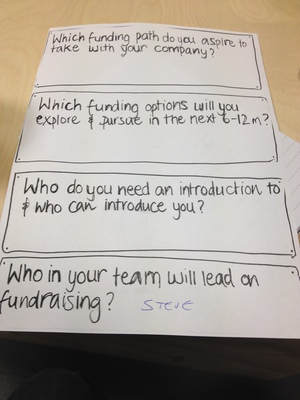 Which funding path do you aspire to
take with your company?
Which funding options will you
explore & pursue in the next 6-12m?
Who do you need an introduction to
& who can introduce you?
Who in your team will lead on
fundraising? STEVE